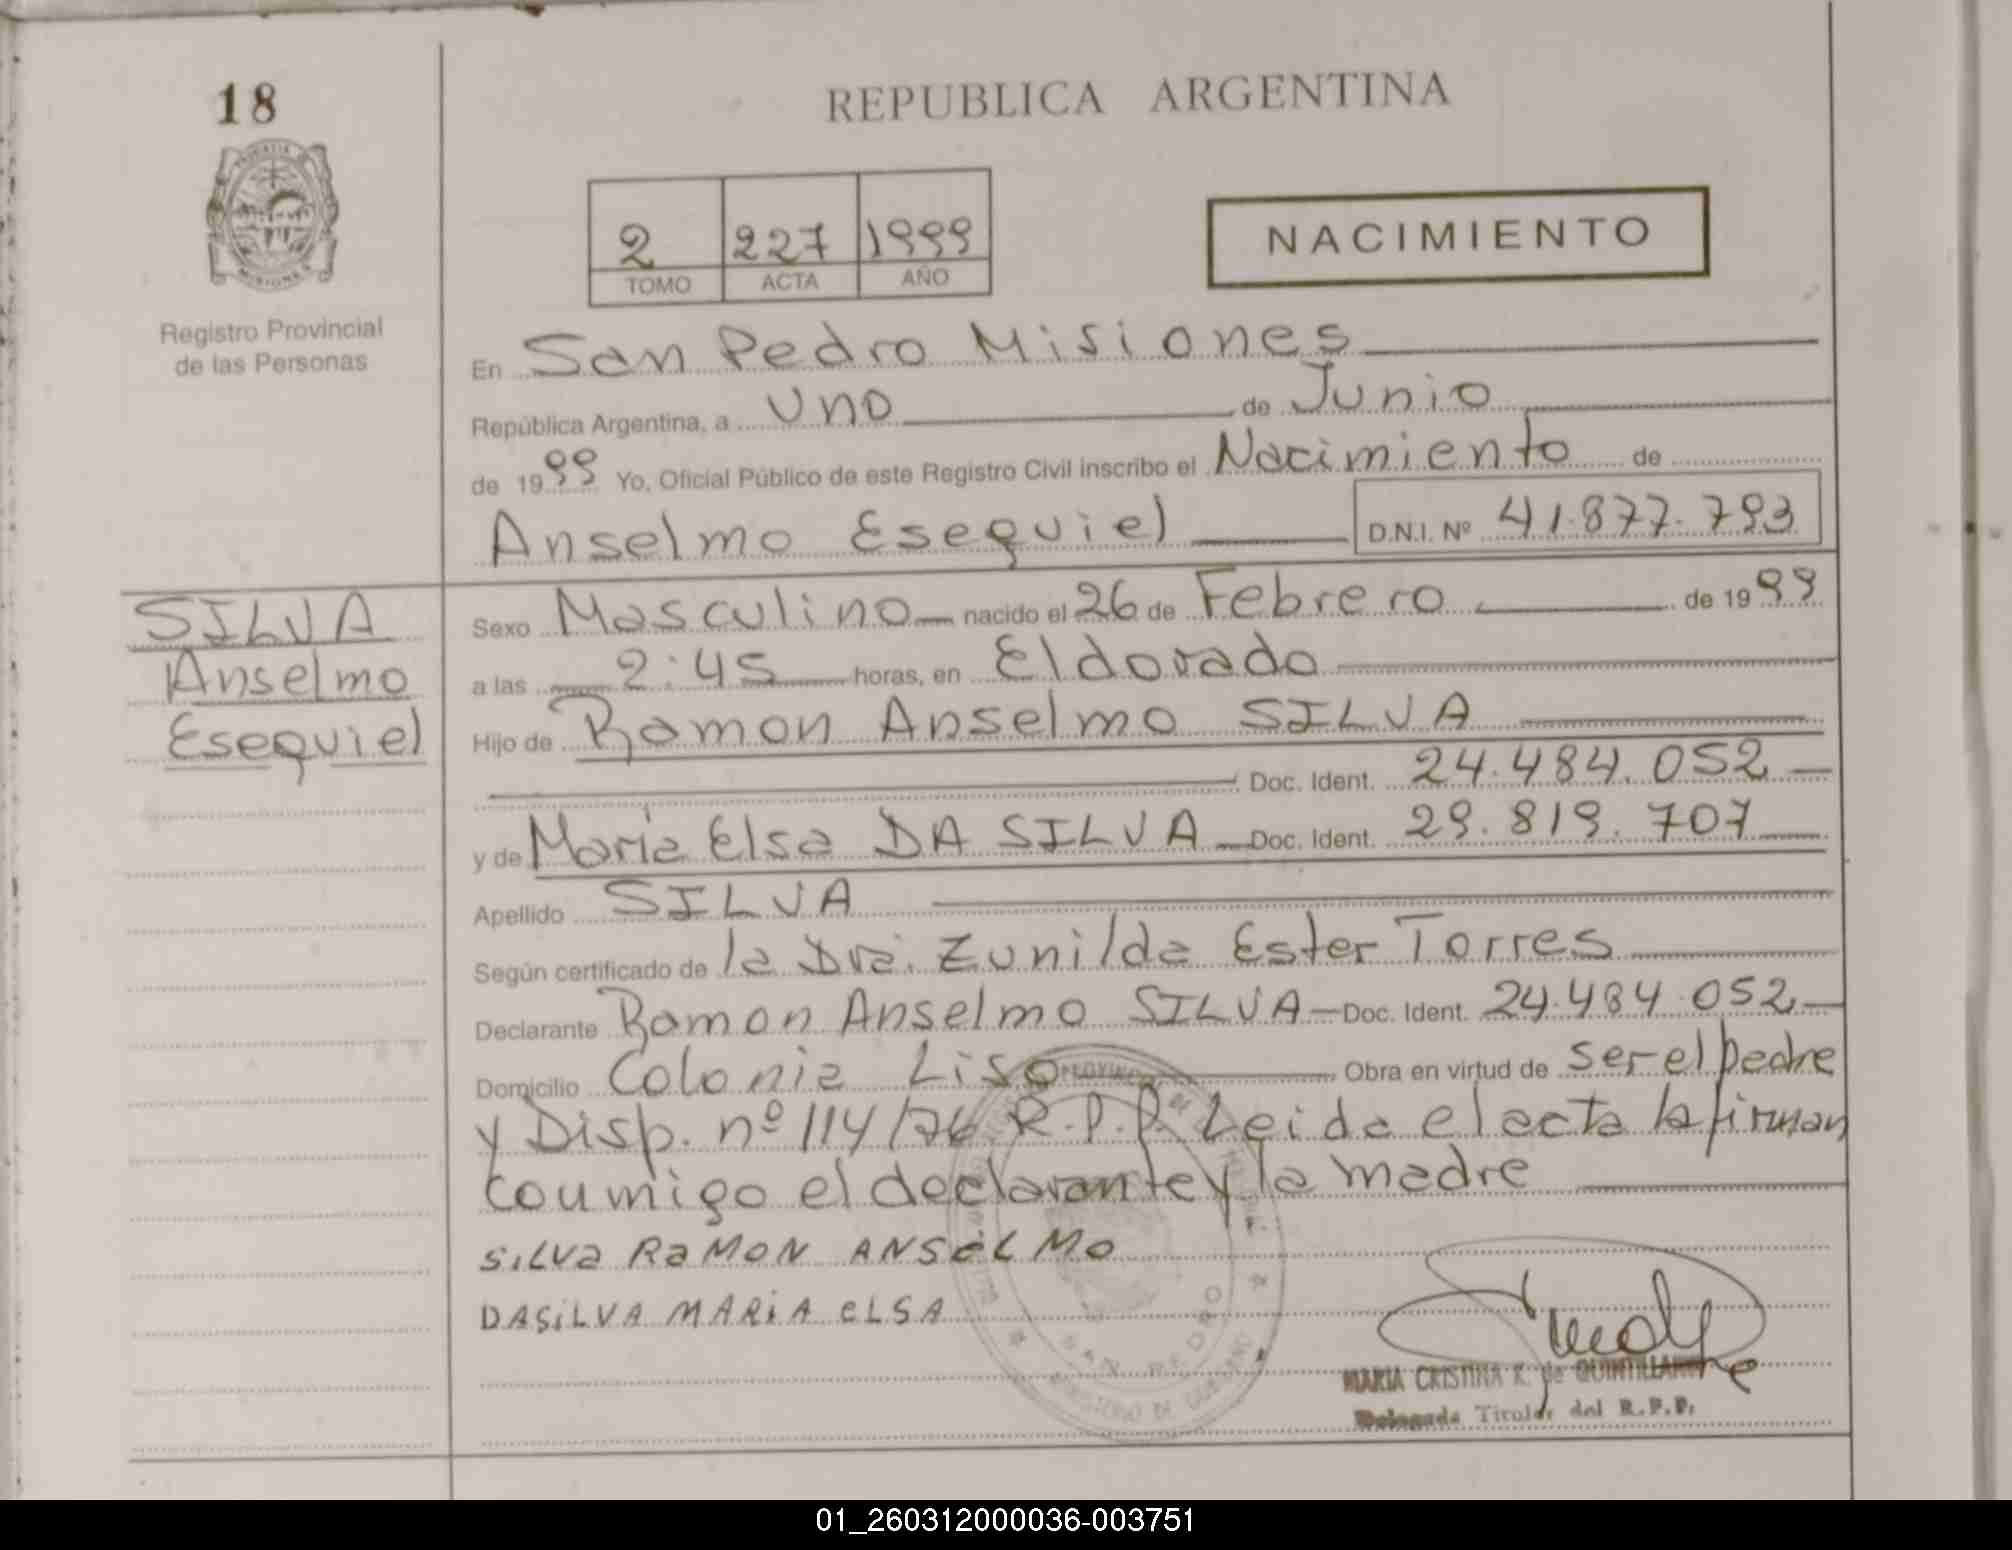 18
REPUBLICA ARGENTINA
2 227 1999
TOMO ACTA AÑO
NACIMIENTO
Registro Provincial
de las Personas
En San Pedro Misiones
República Argentina, a Uno de Junio
de 1999 Yo, Oficial Público de este Registro Civil inscribo el Nacimiento de
Anselmo Esequiel D.N.I. Nº 41.877.793
SILVA
Anselmo
Esequiel
Sexo Masculino nacido el 26 de Febrero de 1999
a las 2:45 horas, en Eldorado
Hijo de Ramon Anselmo SILVA
Doc. Ident. 24.484.052
y de María Elsa DA SILVA Doc. Ident. 29.819.707
Apellido SILVA
Según certificado de la Dra. Zunilda Ester Torres
Declarante Ramon Anselmo SILVA Doc. Ident. 24.484.052
Domicilio Colonia Liso Obra en virtud de ser el padre
y Disp. nº 114/76 R.P.P. Leida el acta la firman
conmigo el declarante y la madre
SILVa RaMON ANSeLMO
DASiLVA MARiA eLSA
SAN PEDRO
MARIA CRISTINA K. de
Delegada Titular del R.P.P.
01_260312000036-003751